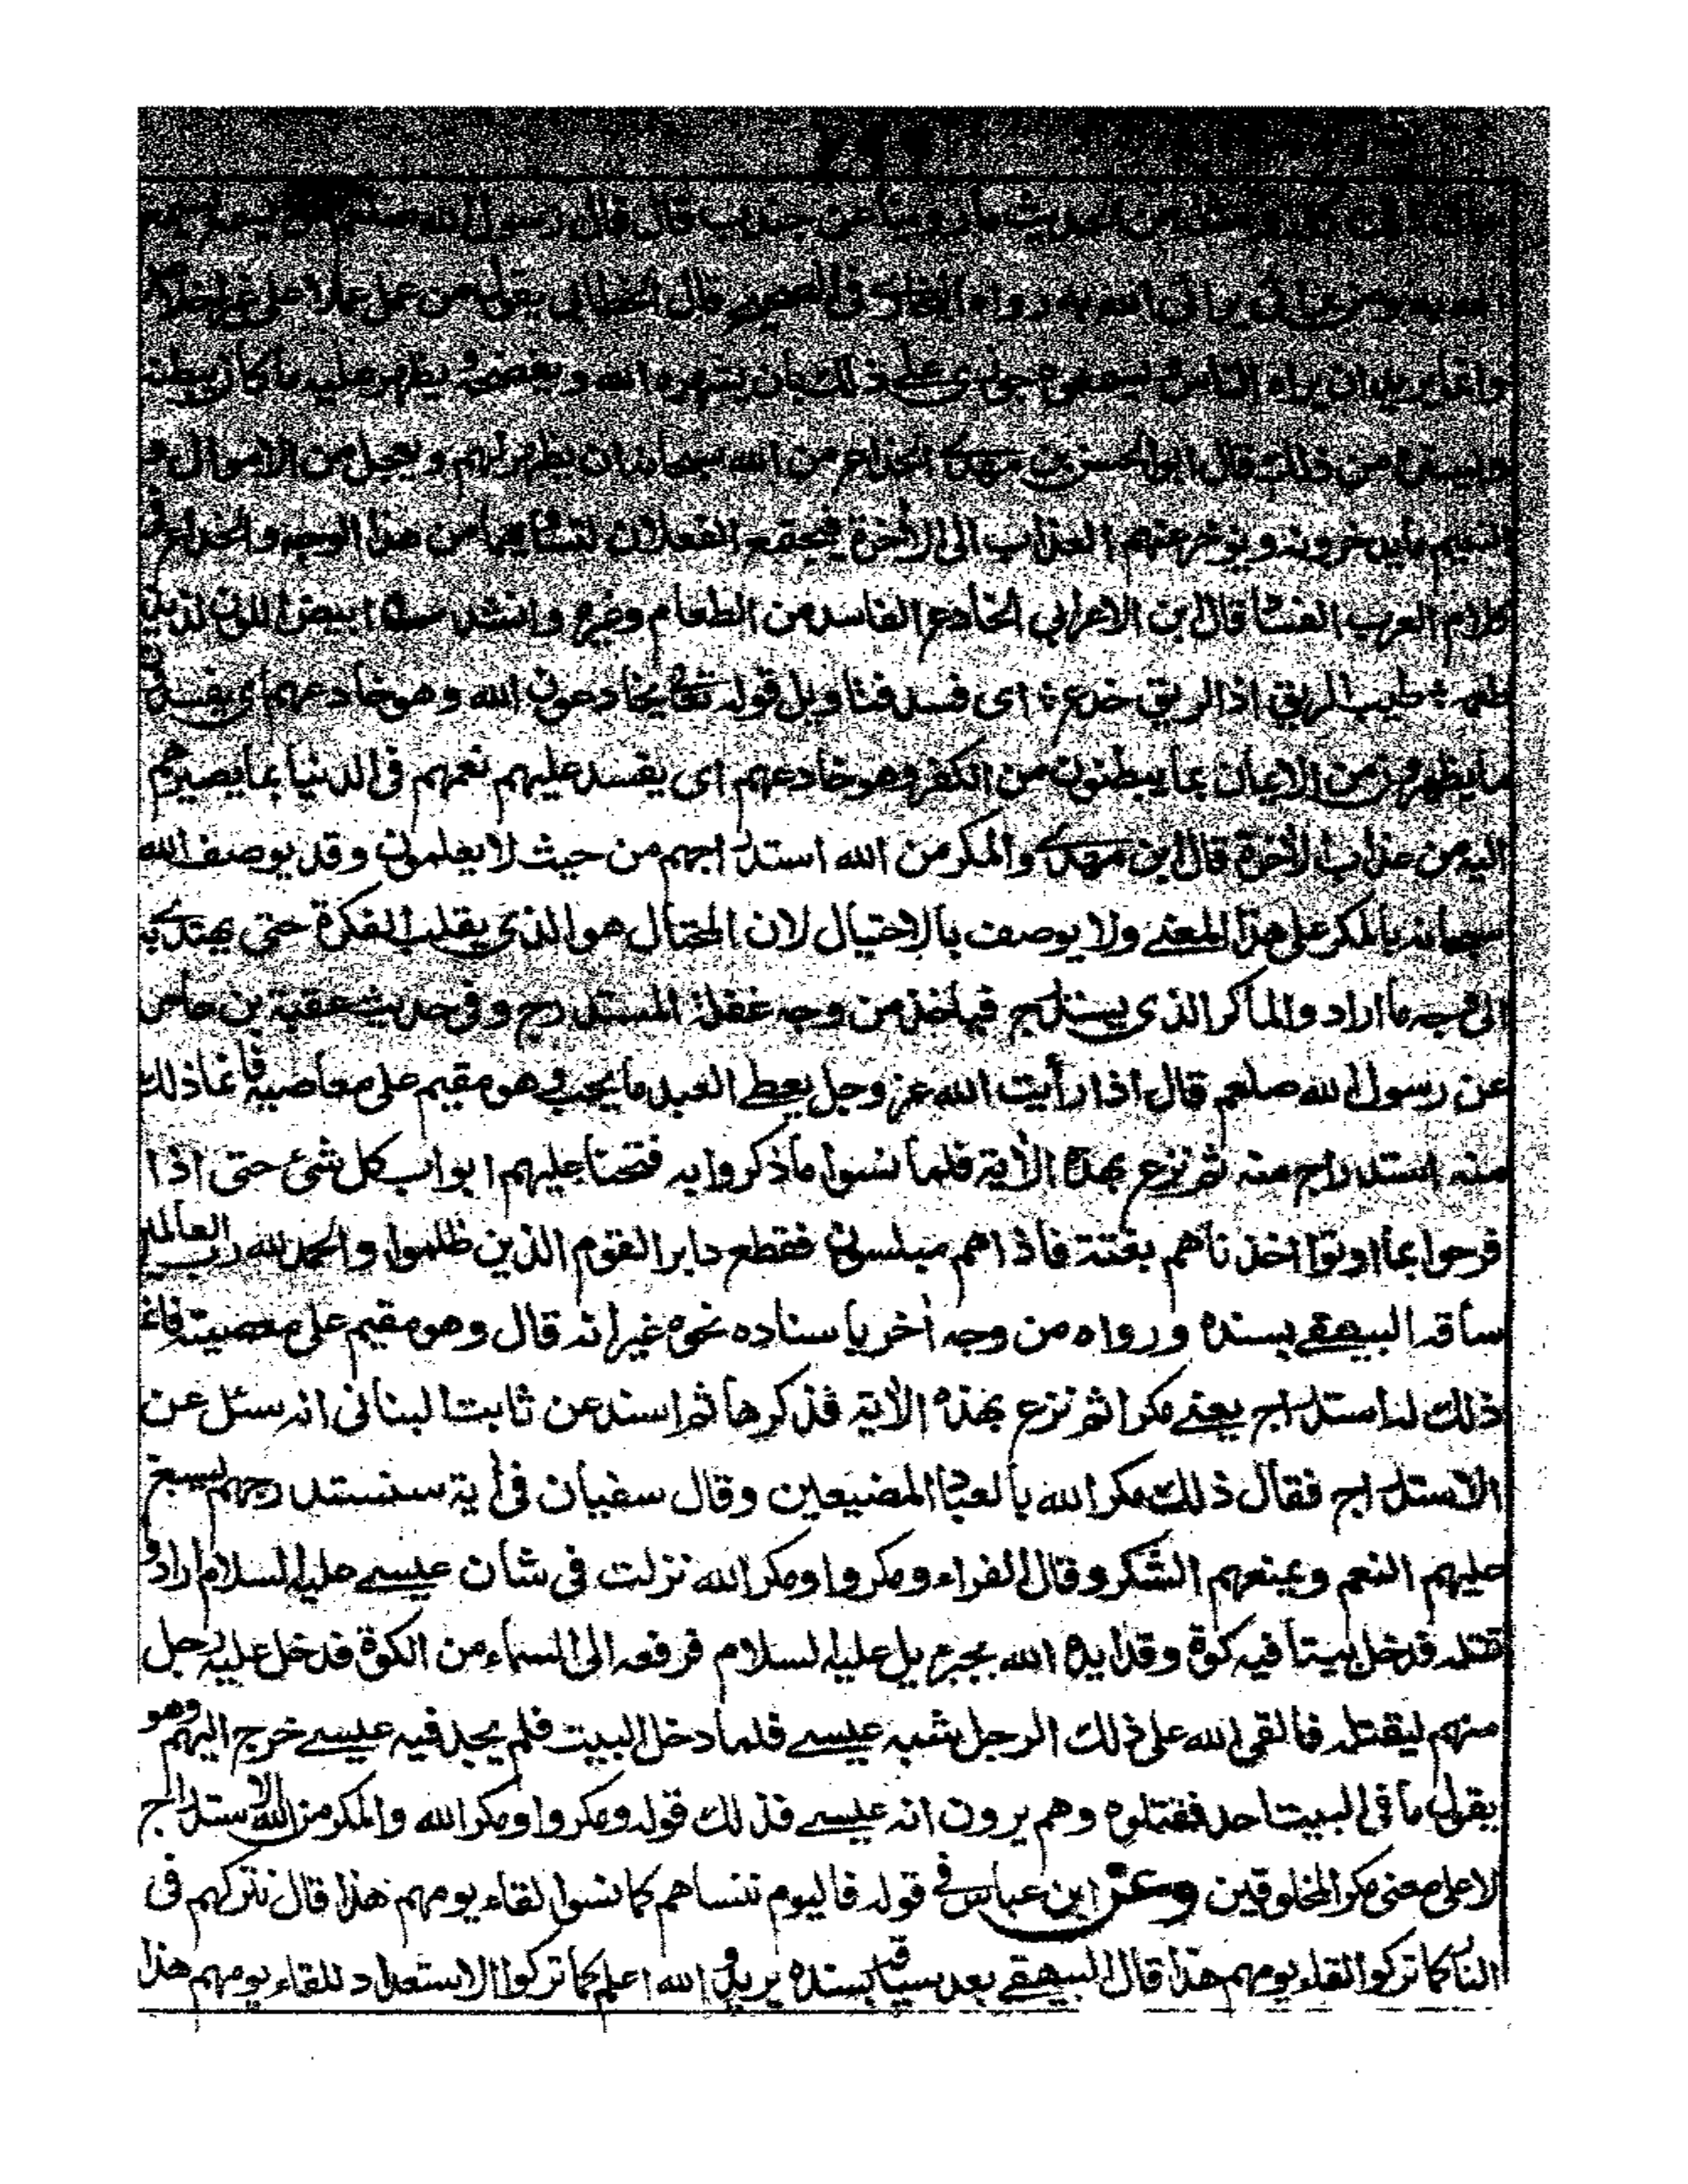 ومثله من الحديث ما روينا عن جندب قال قال رسول الله صلعم من يسمع يسمع
الله به ومن يرائي يرائي الله به رواه البخاري في الصحيح قال الخطابي يقول من عمل عملا على غير اخلاص
وانما يريد ان يراه الناس ويسمعوه جوزي على ذلك بان يشهره الله ويفضحه ويظهر عليه ما كان يبطنه
ويسره من ذلك قال ابو الحسن بن مهدى الخداع من الله سبحانه ان يظهر لهم ويعجل من الاموال و
النعيم ما يدخرونه ويؤخر عنهم العذاب الى الأخرة فيجتمع الفعلان لتشابههما من هذا الوجه والخداع فى
كلام العرب الفساد قال ابن الاعرابي الخادع الفاسد من الطعام وغيره وانشد ابيض اللون لذيذ
طعمه طيب الريق اذا الريق خدع اى فسد فتاويل قوله تعالى يخادعون الله وهو خادعهم اى يفسدون
ما يظهرون من الايمان بما يبطنون من الكفر وهو خادعهم اى يفسد عليهم نعمهم فى الدنيا بما يصيرهم
اليه من عذاب الأخرة قال ابن مهدى والمكر من الله استدراجهم من حيث لا يعلمون وقد يوصف الله
سبحانه بالمكر على هذا المعنى ولا يوصف بالاحتيال لان المحتال هو الذى يقلب الفكرة حتى يهتدى به
الى وجه ما اراد والماكر الذى يستدرج فيأخذ من وجه غفلة المستدرج وفى حديث عقبة بن عامر
عن رسول الله صلعم قال اذا رأيت الله عز وجل يعطى العبد ما يحب وهو مقيم على معاصيه فانما ذلك
منه استدراج منه ثم نزع بهذه الأية فلما نسوا ما ذكروا به فتحنا عليهم ابواب كل شئ حتى اذا
فرحوا بما اوتوا اخذناهم بغتة فاذا هم مبلسون فقطع دابر القوم الذين ظلموا والحمد لله رب العالمين
ساقه البيهقى بسنده ورواه من وجه أخر باسناده نحوه غير انه قال وهو مقيم على معصيته فانما
ذلك له استدراج يعنى مكرا ثم نزع بهذه الأية فذكرها ثم اسند عن ثابت البنانى انه سئل عن
الاستدراج فقال ذلك مكر الله بالعباد المضيعين وقال سفيان فى أية سنستدرجهم نسبغ
عليهم النعم ونمنعهم الشكر وقال الفراء ومكروا ومكر الله نزلت فى شأن عيسى عليه السلام ارادوا
قتله فدخل بيتا فيه كوة وقد ايده الله بجبرئيل عليه السلام فرفعه الى السماء من الكوة فدخل عليه رجل
منهم ليقتله فالقى الله على ذلك الرجل شبه عيسى فلما دخل البيت فلم يجد فيه عيسى خرج اليهم وهو
يقول ما فى البيت احد فقتلوه وهم يرون انه عيسى فذلك قوله ومكروا ومكر الله والمكر من الله الاستدراج
لا على معنى مكر المخلوقين وعن ابن عباس فى قوله فاليوم ننساهم كما نسوا لقاء يومهم هذا قال نتركهم فى
النار كما تركوا لقاء يومهم هذا قال البيهقى بعد سياقه بسنده يريد والله اعلم كما تركوا الاستعداد للقاء يومهم هذا